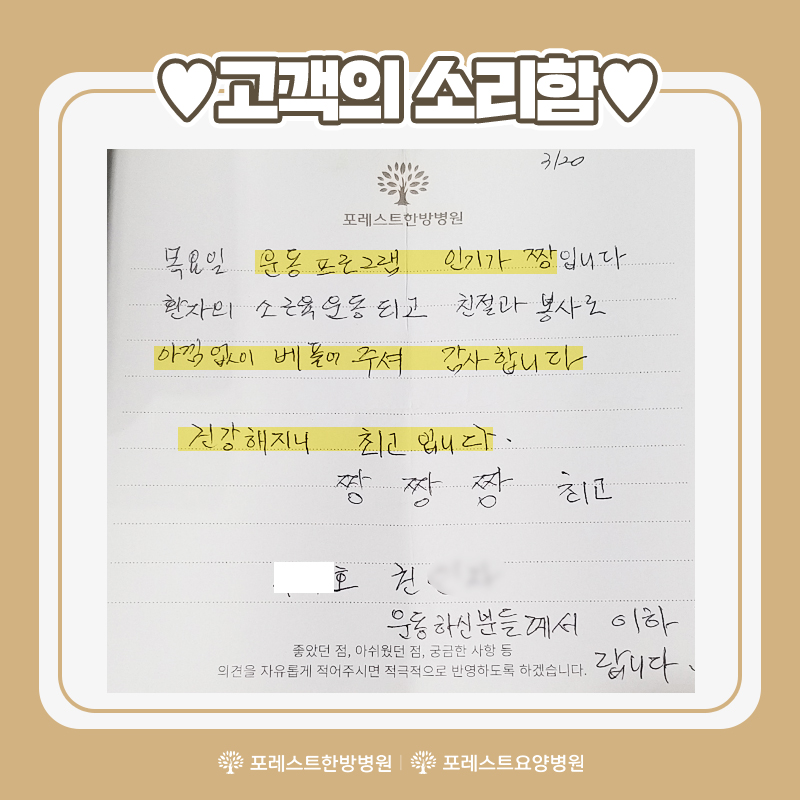 ♥고객의 소리함♥
3/20
포레스트한방병원
목요일 운동 프로그램 인기가 짱입니다
환자의 소근육 운동 되고 친절과 봉사로
아낌없이 베풀어 주셔 감사합니다
건강해지니 최고 입니다.
짱 짱 짱 최고
호 권
운동하신분들께서 이하
랍니다.
좋았던 점, 아쉬웠던 점, 궁금한 사항 등
의견을 자유롭게 적어주시면 적극적으로 반영하도록 하겠습니다.
포레스트한방병원 | 포레스트요양병원